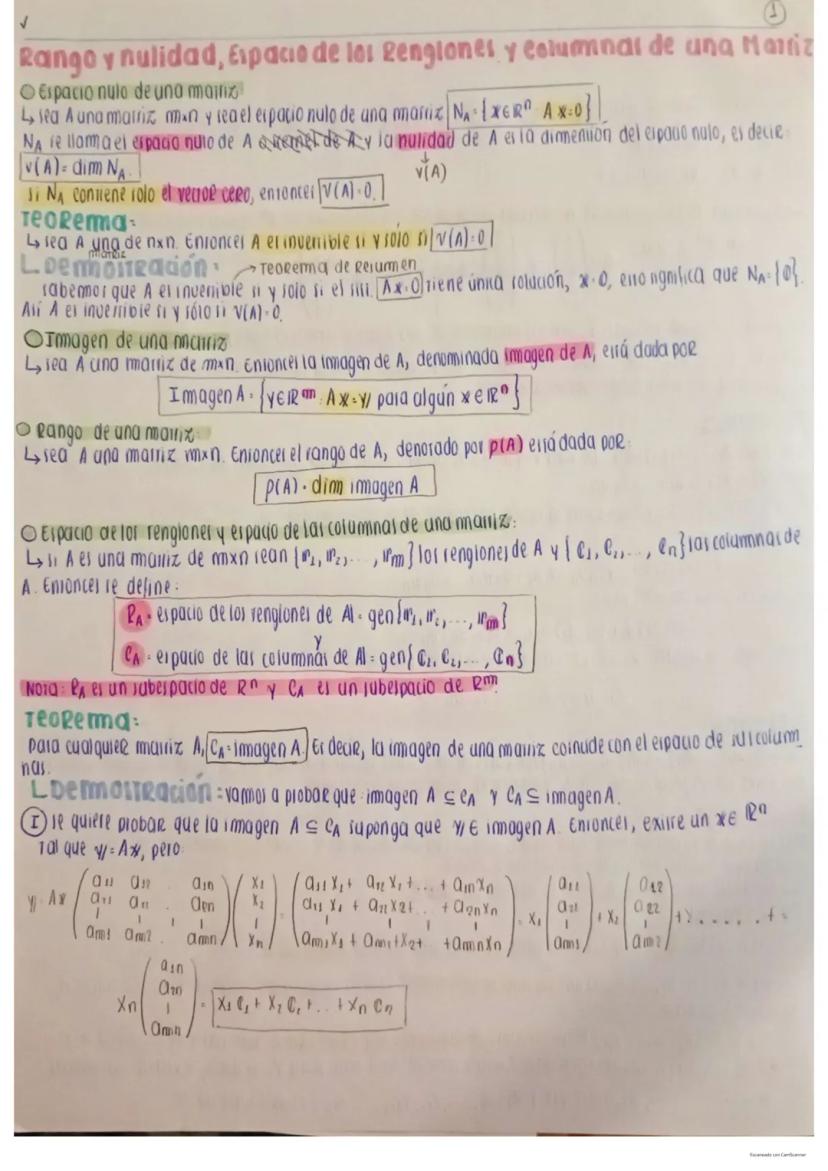 ①
Rango y nulidad, Espacio de los Renglones y columnas de una Matriz
Espacio nulo de una matriz
↳ sea A una matriz m×n y sea el espacio nulo de una matriz N_A = {x∈ℝⁿ : Ax=0}
N_A se llama el espacio nulo de A y la nulidad de A es la dimensión del espacio nulo, es decir
ν(A) = dim N_A.
ν(A)
si N_A contiene solo el vector cero, entonces ν(A)=0.
Teorema:
↳ sea A una de n×n. Entonces A es invertible si y sólo si ν(A)=0
matriz
Demostración: → Teorema de Resumen
sabemos que A es invertible si y solo si el sist. Ax=0 tiene única solución, x=0, esto significa que N_A={0}.
Así A es invertible si y sólo si ν(A)=0.
Imagen de una matriz
↳ sea A una matriz de m×n. Entonces la imagen de A, denominada imagen de A, está dada por
Imagen A = {y∈ℝᵐ : Ax=y para algún x∈ℝⁿ}
Rango de una matriz
↳ sea A una matriz m×n. Entonces el rango de A, denotado por ρ(A) está dada por:
ρ(A) = dim imagen A
Espacio de los renglones y espacio de las columnas de una matriz:
↳ si A es una matriz de m×n sean {r₁, r₂, ..., rₘ} los renglones de A y {c₁, c₂, ..., cₙ} las columnas de
A. Entonces se define:
R_A = espacio de los renglones de A = gen{r₁, r₂, ..., rₘ}
y
C_A = espacio de las columnas de A = gen{c₁, c₂, ..., cₙ}
Nota: R_A es un subespacio de Rⁿ y C_A es un subespacio de Rᵐ.
Teorema:
para cualquier matriz A, C_A = imagen A. Es decir, la imagen de una matriz coincide con el espacio de sus colum
nas.
Demostración: vamos a probar que: imagen A ⊆ C_A y C_A ⊆ imagen A.
Ⓘ se quiere probar que la imagen A ⊆ C_A suponga que y ∈ imagen A. Entonces, existe un x∈ ℝⁿ
tal que y=Ax, pero
y=Ax (a₁₁ a₁₂ . a₁ₙ) (x₁) = (a₁₁x₁ + a₁₂x₂ + ... + a₁ₙxₙ) = x₁ (a₁₁) + x₂ (a₁₂) + ...... + =
(a₂₁ a₂₂ . a₂ₙ) (x₂) (a₂₁x₁ + a₂₂x₂+ .. + a₂ₙxₙ) (a₂₁) (a₂₂)
(aₘ₁ aₘ₂ . aₘₙ) (xₙ) (aₘ₁x₁ + aₘ₂+x₂+ .. +aₘₙxₙ) (aₘ₁) (aₘ₂)
xₙ (a₁ₙ a₂ₙ | aₘₙ) = x₁c₁ + x₂c₂ + ... + xₙcₙ
Escaneado con CamScanner